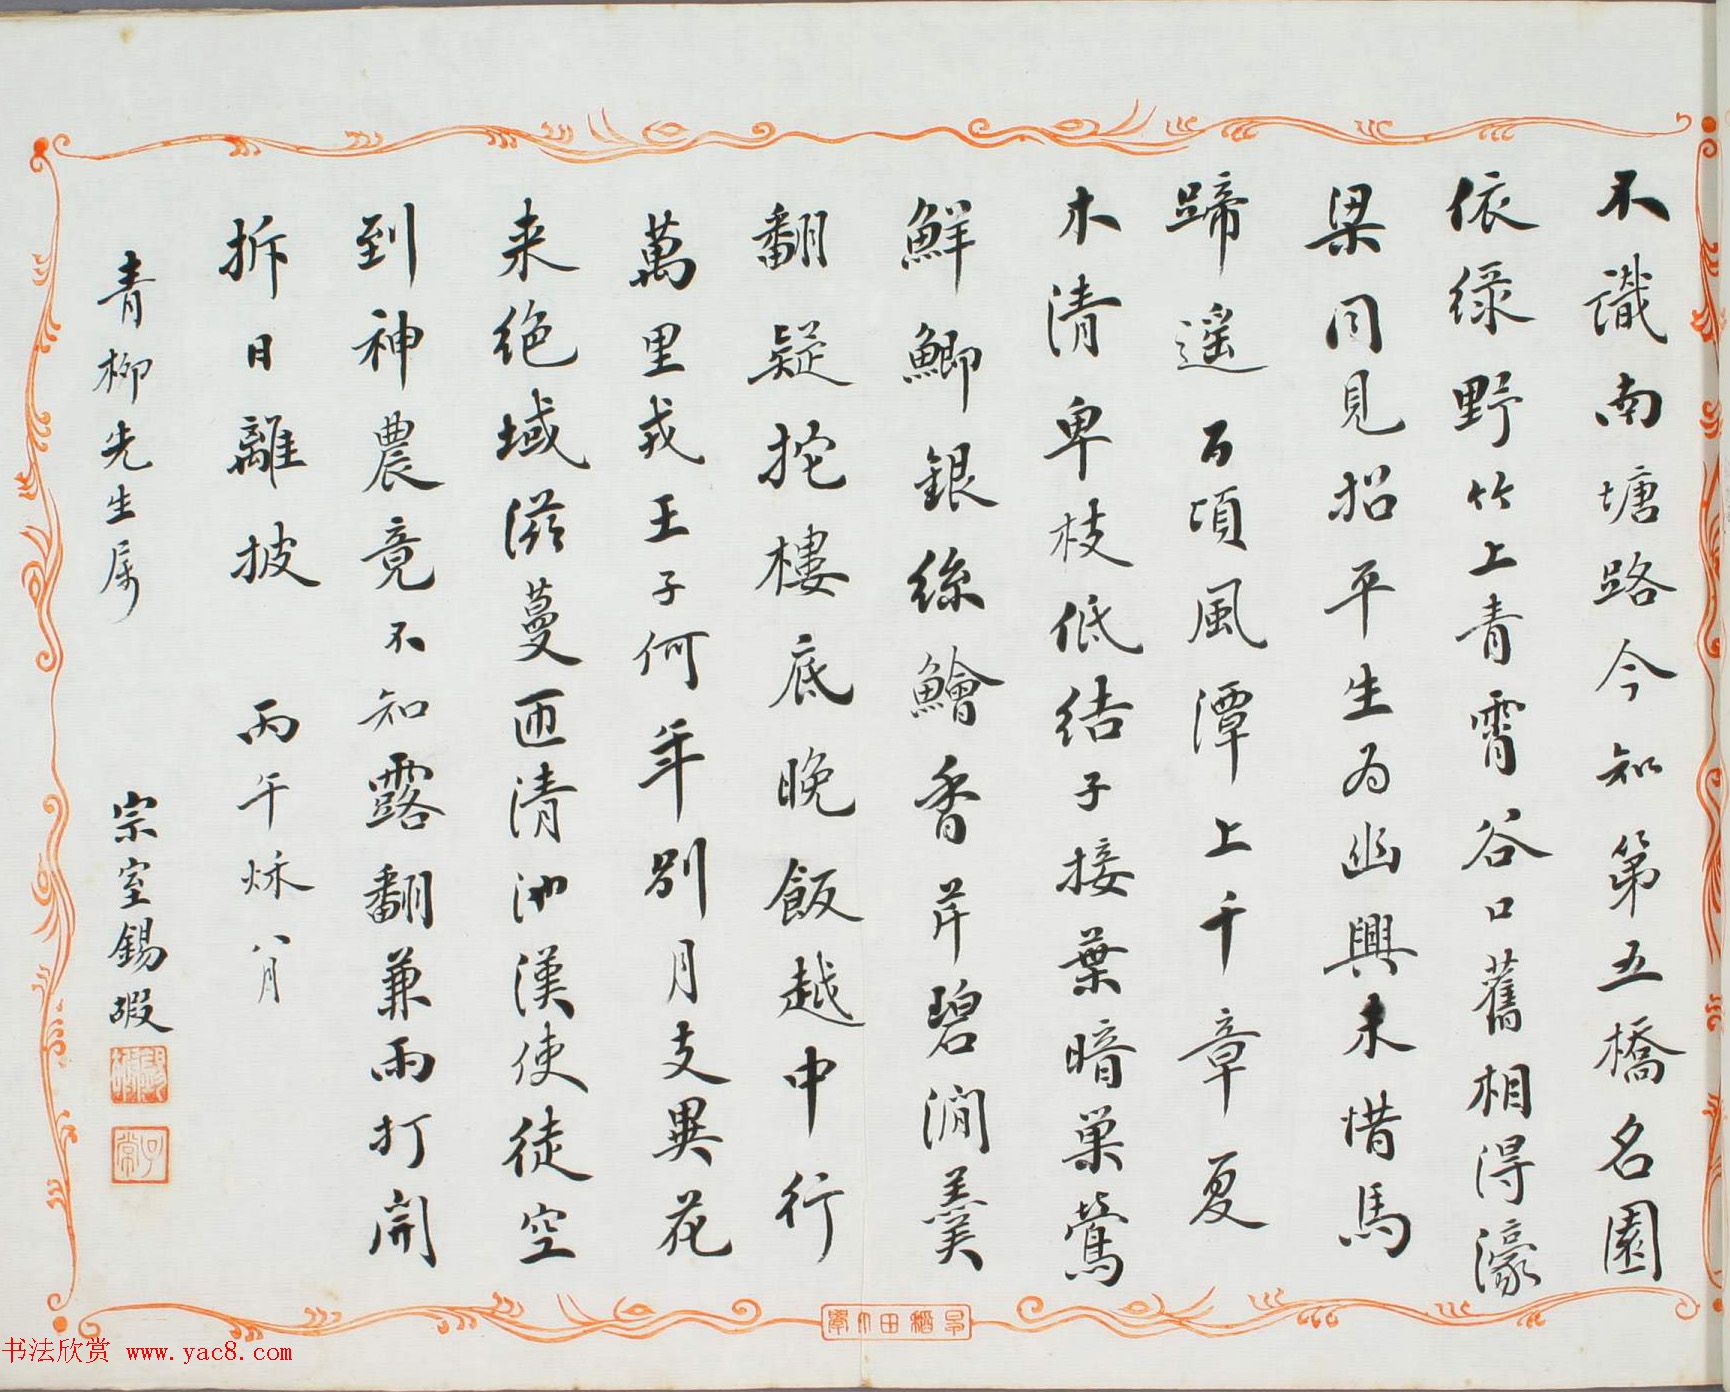 不識南塘路今知第五橋名園
依綠野竹上青霄谷口舊相得濠
梁同見招平生為幽興未惜馬
蹄遥百頃風潭上千章夏
木清卑枝低結子接葉暗巢鶯
鮮鯽銀絲鱠香芹碧澗羹
翻疑柁樓底晚飯越中行
萬里戎王子何年別月支異花
来絶域滋蔓匝清池漢使徒空
到神農竟不知露翻兼雨打開
拆日離披 丙午秌八月
青柳先生属 宗室錫嘏
早稻田大學
书法欣赏 www.yac8.com